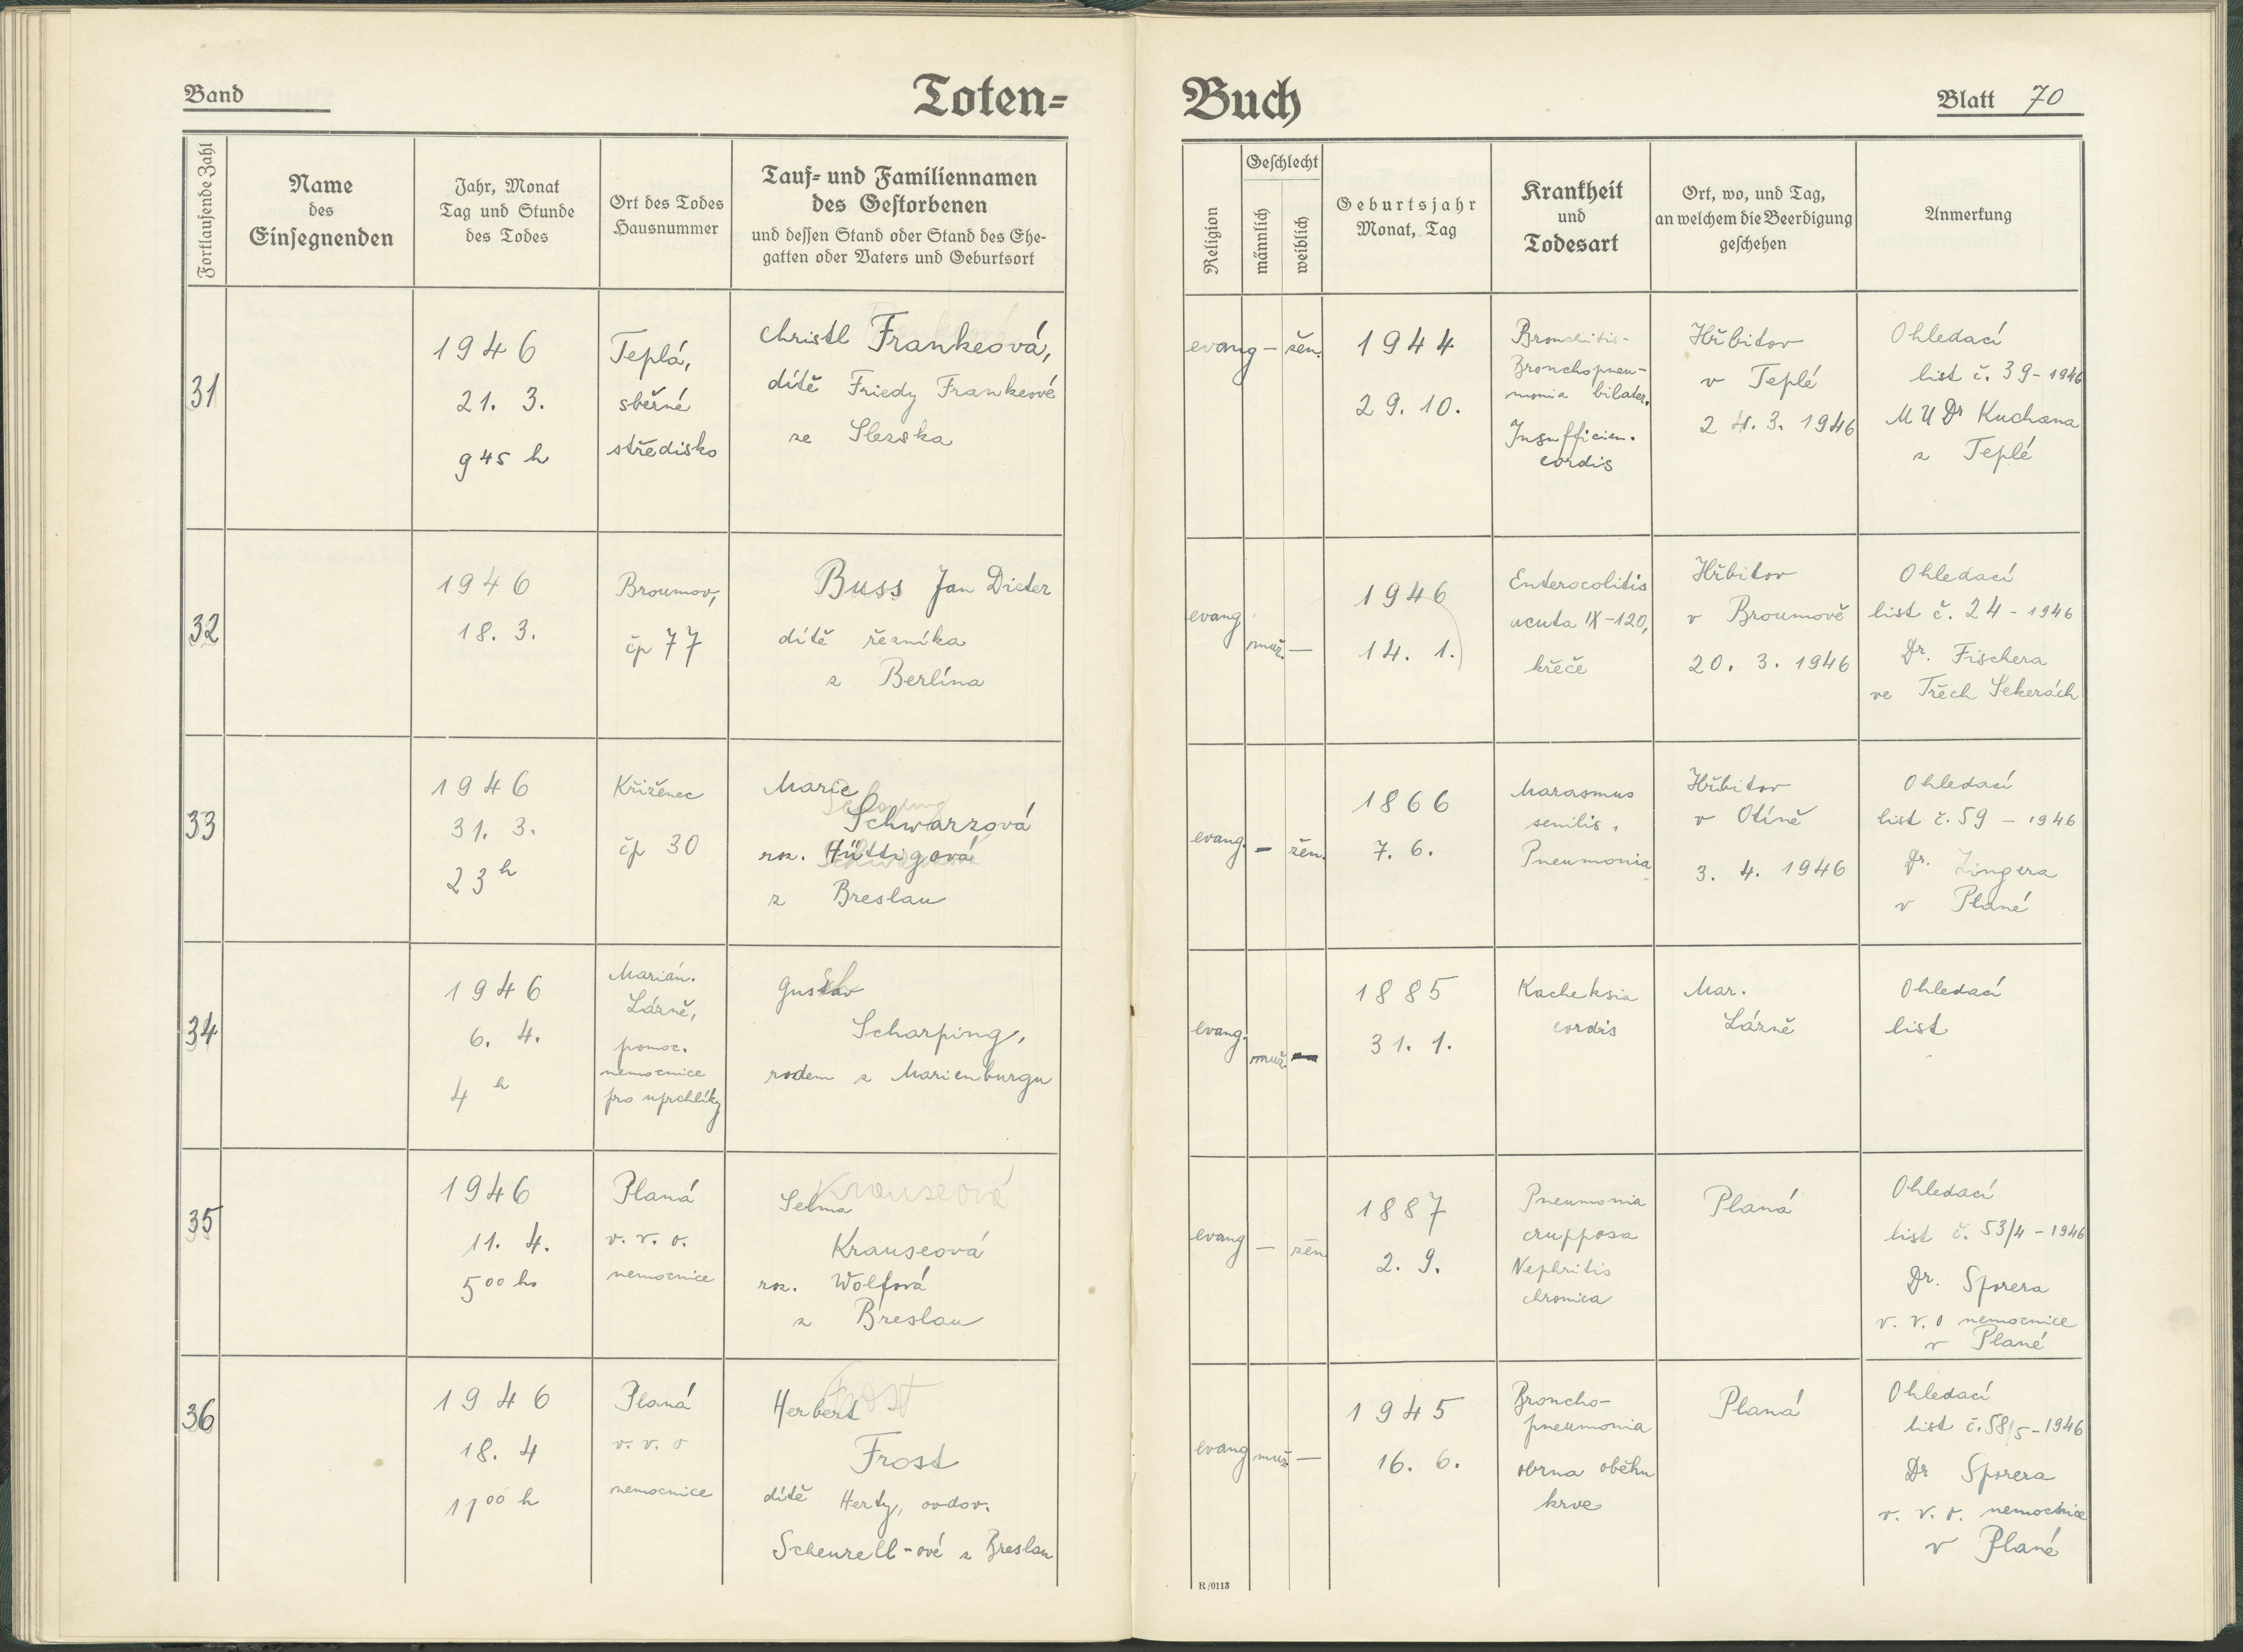 Band
Toten=
Fortlaufende Zahl
Name
des
Einsegnenden
Jahr, Monat
Tag und Stunde
des Todes
Ort des Todes
Hausnummer
Tauf= und Familiennamen
des Gestorbenen
und dessen Stand oder Stand des Ehe-
gatten oder Vaters und Geburtsort
31
1946
21. 3.
9 45 h
Teplá,
sběrné
středisko
Christl Frankeová,
dítě Friedy Frankeové
ze Slezska
32
1946
18. 3.
Broumov,
čp 77
Buss Jan Dieter
dítě řezníka
z Berlína
33
1946
31. 3.
23 h
Kříženec
čp 30
Marie
Schwarzová
roz. Hüttigová
z Breslau
34
1946
6. 4.
4 h
Marián.
Lázně,
pomoc.
nemocnice
pro uprchlíky
Gustav
Scharping,
rodem z Marienburgu
35
1946
11. 4.
5 00 h
Planá
v. v. o.
nemocnice
Krauseová
Selma
Krauseová
roz. Wolfová
z Breslau
36
1946
18. 4
11 00 h
Planá
v. v. o
nemocnice
Frost
Herbert
Frost
dítě Herty, ovdov.
Scheurell-ové z Breslau
Buch
Blatt 70
Religion
Geschlecht
männlich
weiblich
Geburtsjahr
Monat, Tag
Krankheit
und
Todesart
Ort, wo, und Tag,
an welchem die Beerdigung
geschehen
Anmerkung
evang — žen.
1944
29. 10.
Bronchitis-
Bronchopneu-
monia bilater.
Insufficien.
cordis
Hřbitov
v Teplé
24. 3. 1946
Ohledací
list č. 39-1946
MUDr Kuchana
z Teplé
evang
muž. —
1946
14. 1.
Enterocolitis
acuta IX-120,
křeče
Hřbitov
v Broumově
20. 3. 1946
Ohledací
list č. 24-1946
Dr. Fischera
ve Třech Sekerách
evang. — žen.
1866
7. 6.
Marasmus
senilis,
Pneumonia
Hřbitov
v Otíně
3. 4. 1946
Ohledací
list č. 59 - 1946
Dr. Zingera
v Plané
evang.
muž. —
1885
31. 1.
Kacheksia
cordis
Mar.
Lázně
Ohledací
list
evang — žen
1887
2. 9.
Pneumonia
crupposa
Nephritis
chronica
Planá
Ohledací
list č. 53/4 - 1946
Dr. Sporera
v. v. o nemocnice
v Plané
evang muž. —
1945
16. 6.
Broncho-
pneumonia
obrna oběhu
krve
Planá
Ohledací
list č. 58/5-1946
Dr Sporera
v. v. o. nemocnice
v Plané
R/0113